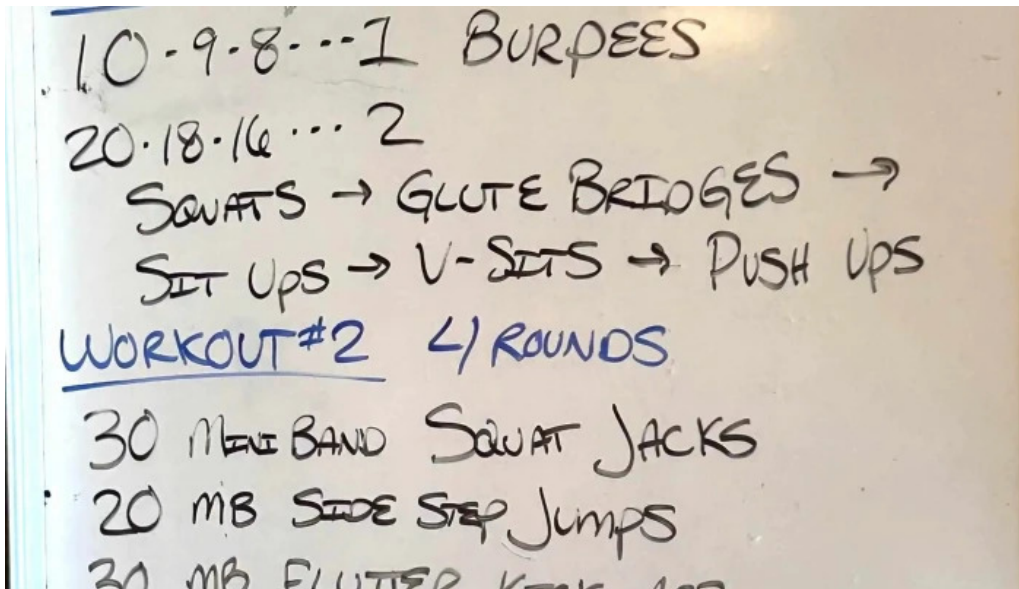 10·9·8···1 BURPEES
20·18·16 ··· 2
SQUATS → GLUTE BRIDGES →
SIT UPS → V-SITS → PUSH UPS
WORKOUT #2 4 ROUNDS
30 MINI BAND SQUAT JACKS
20 MB SIDE STEP JUMPS
30 MB FLUTTER KICK